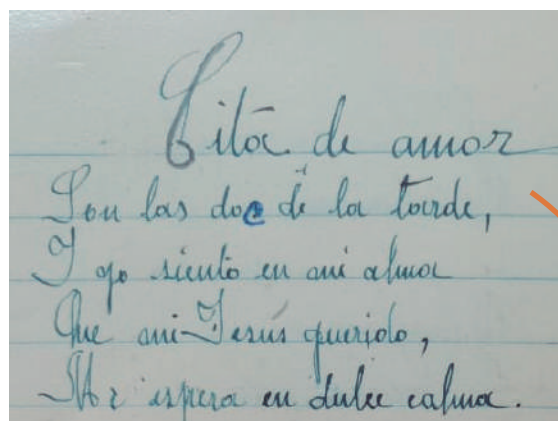 Cita de amor
Son las doce de la tarde,
Y yo siento en mi alma
Que mi Jesús querido,
Me espera en dulce calma.